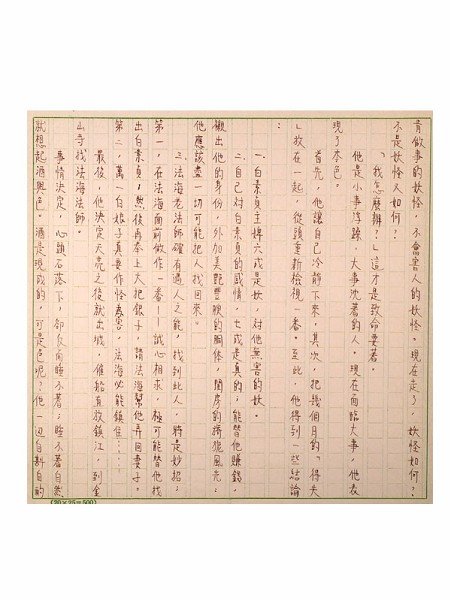 肯做事的妖怪，不會害人的妖怪。現在走了，妖怪如何？
不是妖怪人如何？
「我怎麼辦？」這才是致命要著。
他是小事浮躁，大事沈著的人。現在面臨大事，他表
現了本色。
首先，他讓自己冷靜下來，其次，把幾個月的「得失
」放在一起，從頭重新檢視一番。至此，他得到一些結論
：
一、白素貞主婢六成是妖，對他無害的妖。
二、自己對白素貞的感情，七成是真的；能替他賺錢，
襯出他的身份，外加美艷豐腴的胴體，閨房的旖旎風光：
他應該盡一切可能把人找回來。
三、法海老法師確有過人之能，找到此人，將是妙招；
第一，在法海面前做作一番——誠心相求，極可能替他找
出白素貞，然後再奉上大把銀子，請法海幫他弄回妻子。
第二，萬一白娘子真要作怪為害，法海必能鎮住……
最後，他決定天亮之後就出城，催船直放鎮江，到金
山寺找法海法師。
事情決定，心頭石落下，卻反而睡不著；睡不著自然
就想起酒與色。酒是現成的，可是色呢？他一邊自斟自酌
(20×25=500)